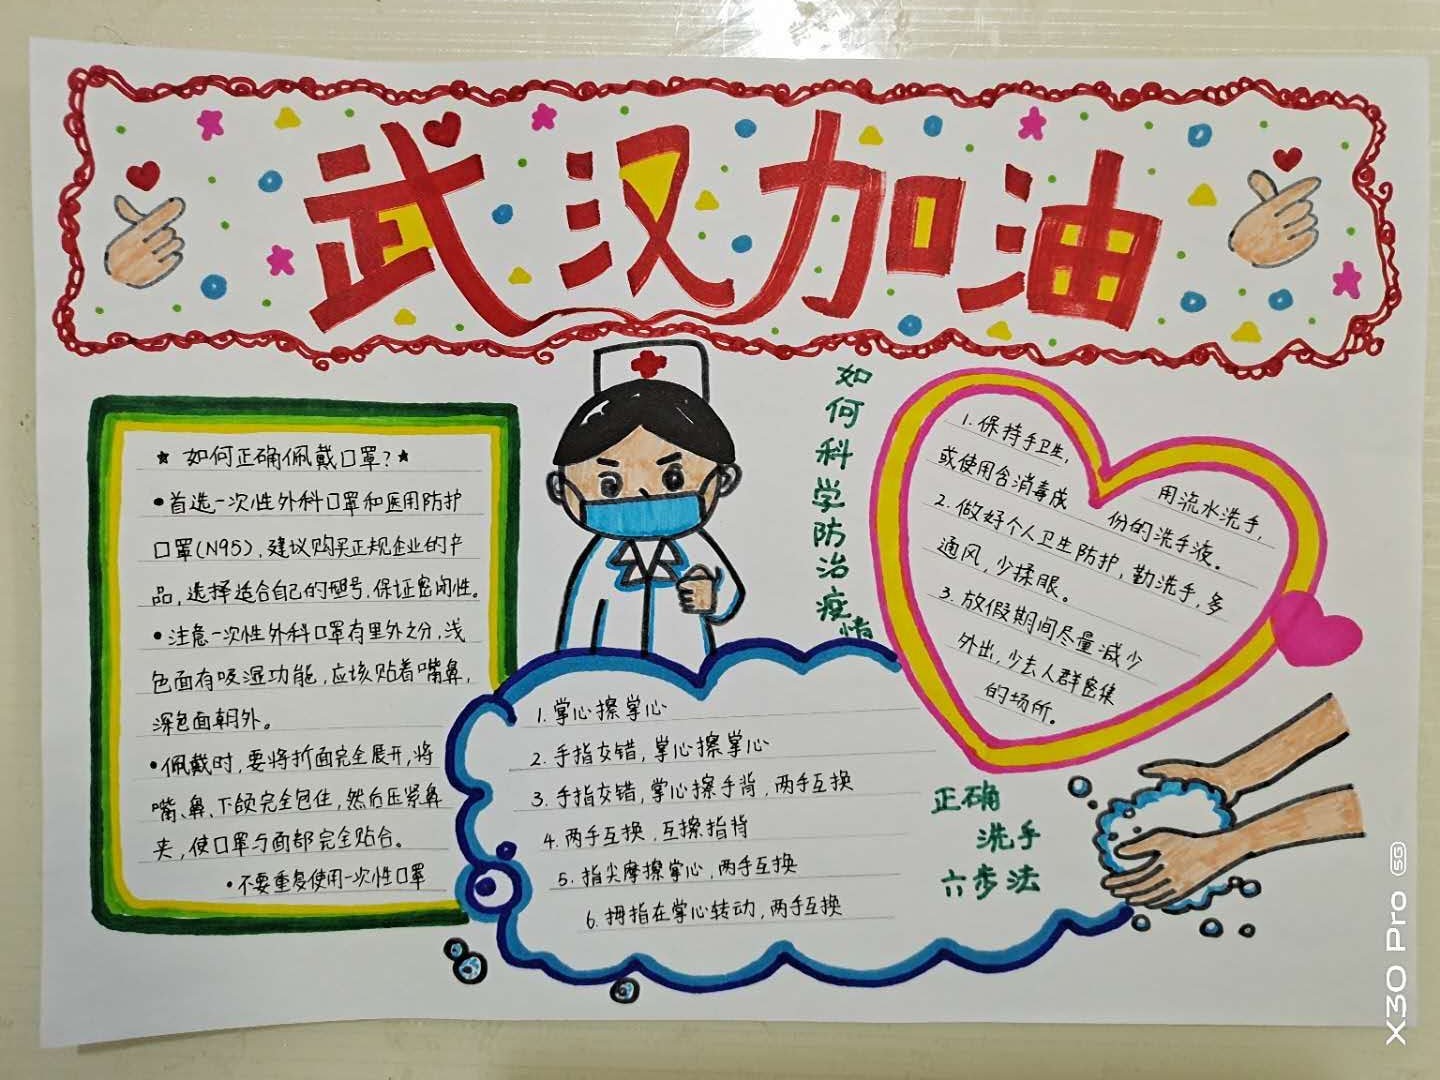 武汉加油
★如何正确佩戴口罩?★
•首选一次性外科口罩和医用防护
口罩(N95),建议购买正规企业的产
品,选择适合自己的型号.保证密闭性。
•注意一次性外科口罩有里外之分,浅
色面有吸湿功能,应该贴着嘴鼻,
深色面朝外。
•佩戴时,要将折面完全展开,将
嘴、鼻、下颌完全包住,然后压紧鼻
夹,使口罩与面部完全贴合。
•不要重复使用一次性口罩
如何科学防治疫情
1.保持手卫生,
用流水洗手,
或使用含消毒成
份的洗手液。
2.做好个人卫生防护,勤洗手,多
通风,少揉眼。
3.放假期间尽量减少
外出,少去人群密集
的场所。
正确
洗手
六步法
1.掌心擦掌心
2.手指交错,掌心擦掌心
3.手指交错,掌心擦手背,两手互换
4.两手互换,互擦指背
5.指尖摩擦掌心,两手互换
6.拇指在掌心转动,两手互换
X30 Pro 5G